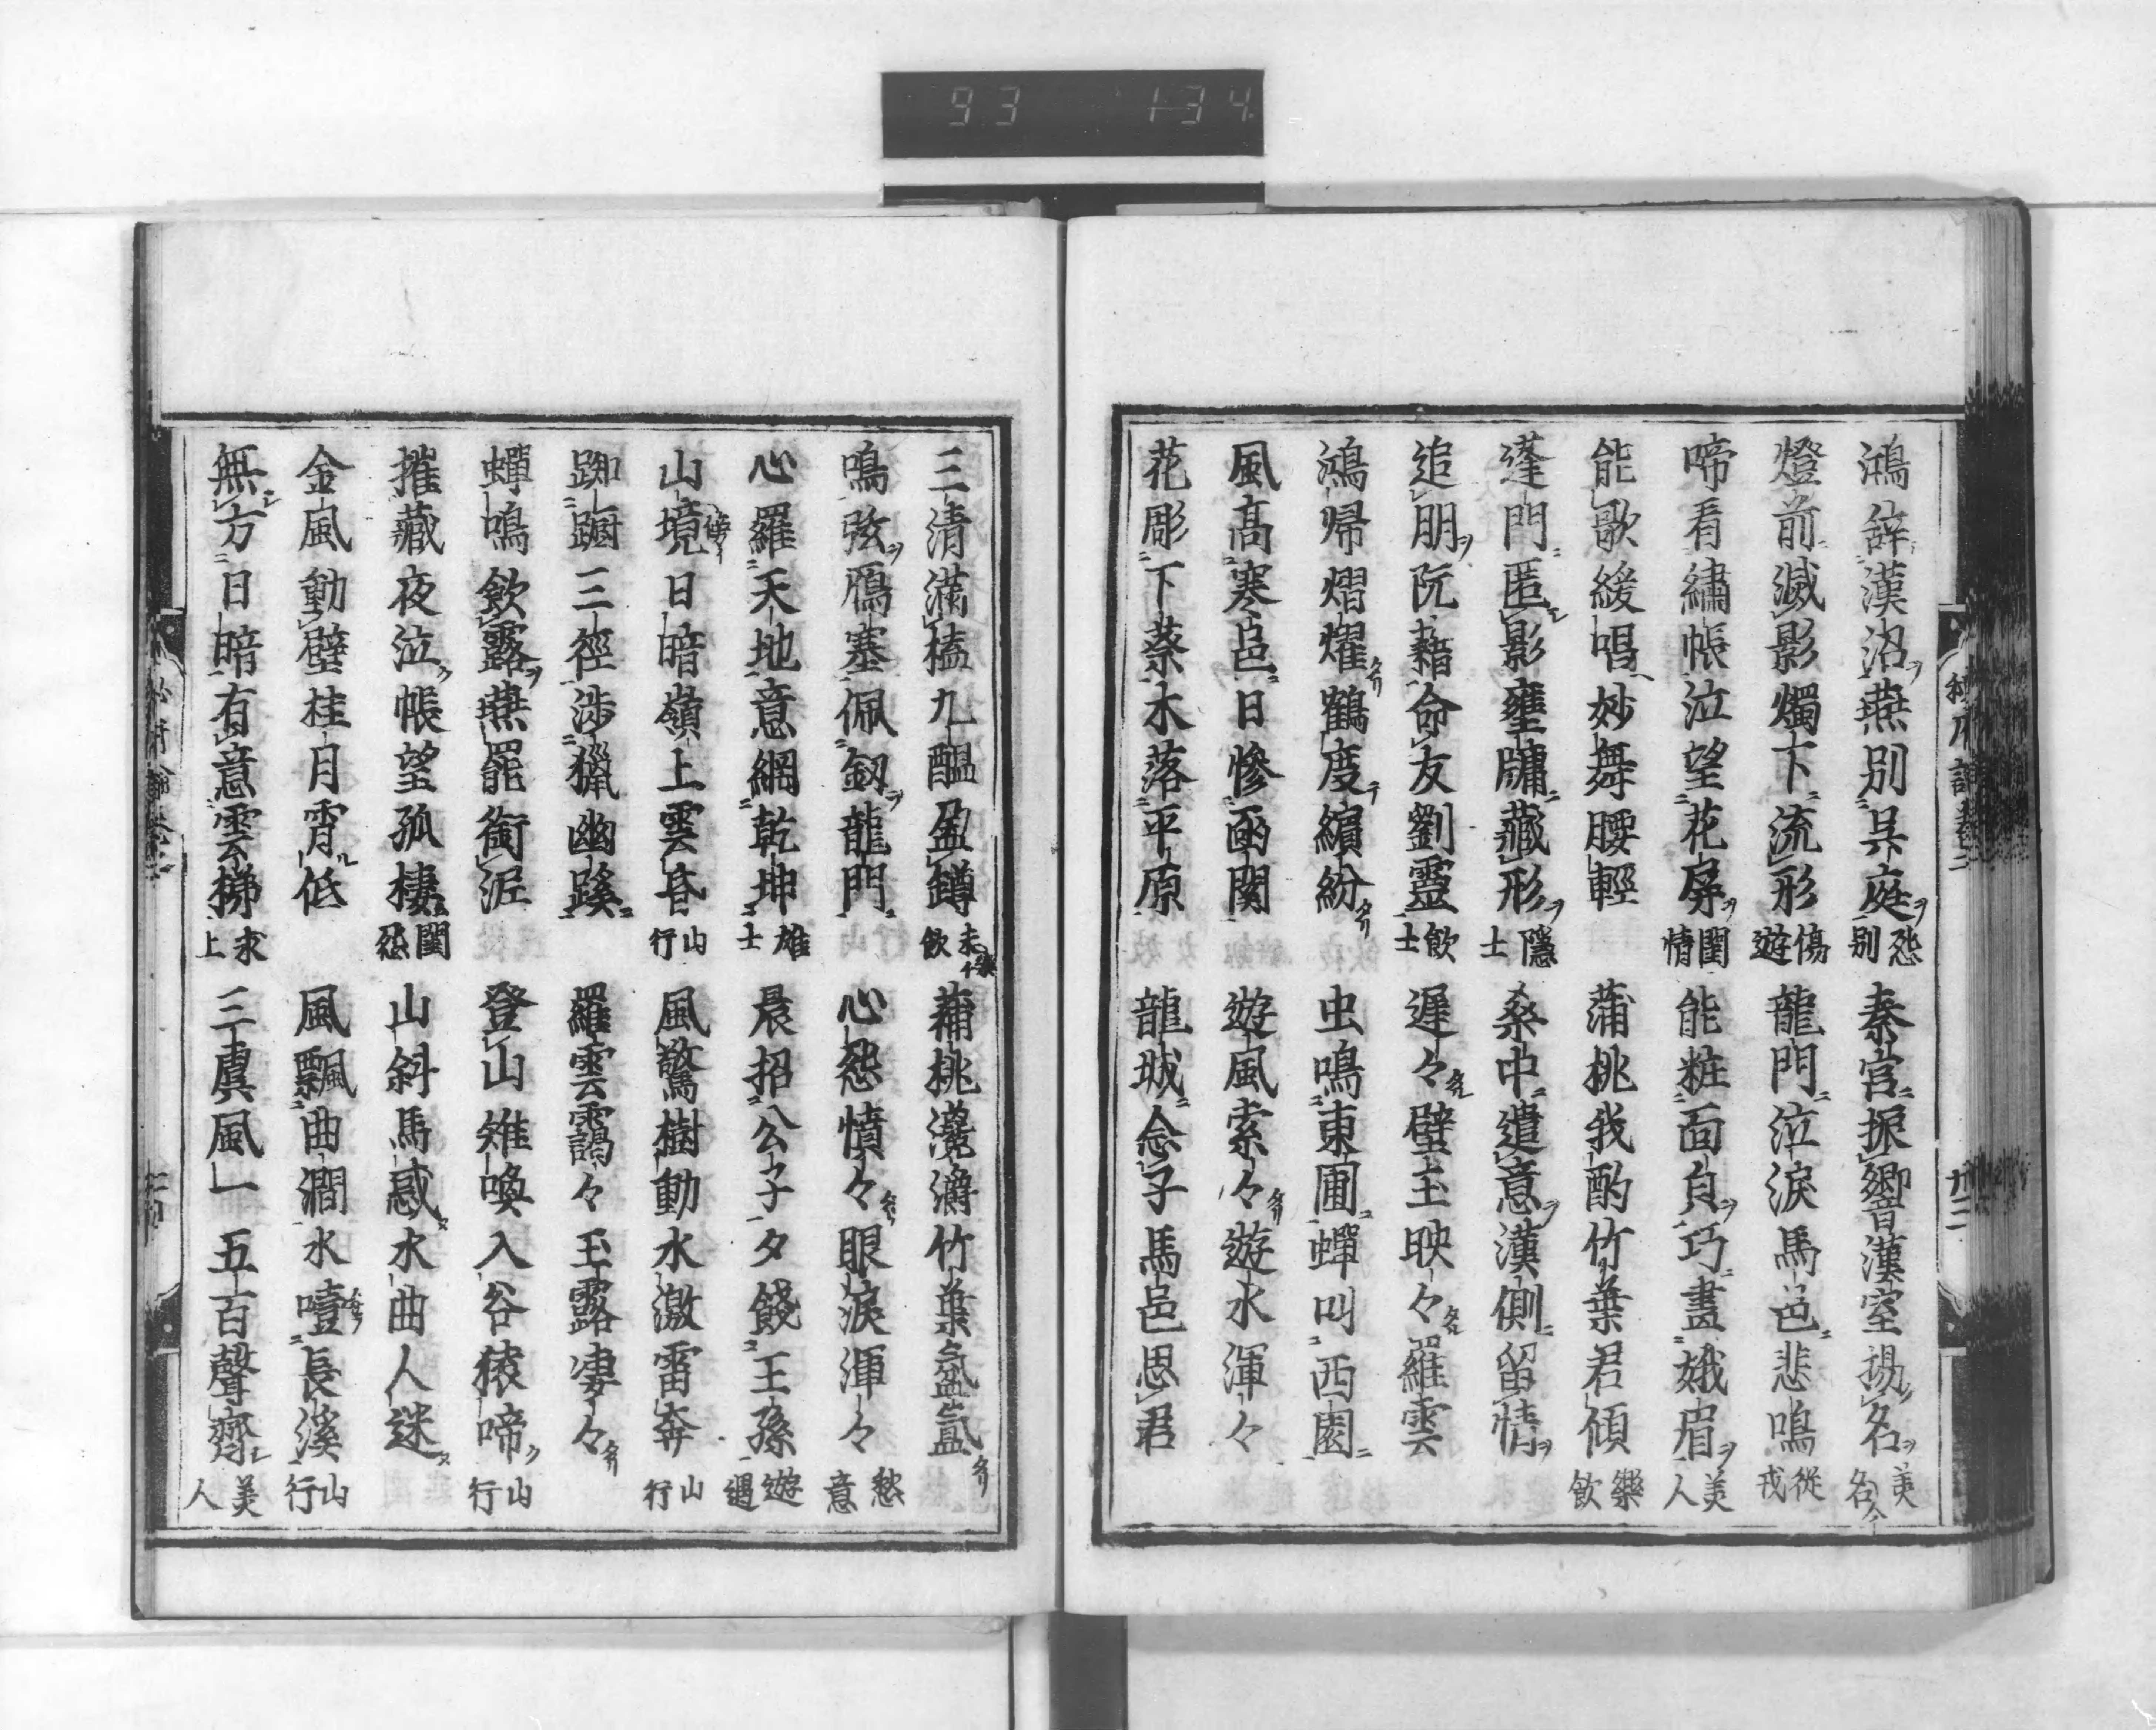 93 134
鴻辭漢沼燕別呉庭怨別 秦宮振響漢室揚名美名
燈前滅影燭下流形傷遊 龍門泣淚馬邑悲鳴從戎
啼看繡帳泣望花屏閨情 能粧面白巧畫娥眉美人
能歌緩唱妙舞腰輕 蒲桃我酌竹葉君傾樂飲
蓬門匿影壅牖藏形隱士 桑中遣意漢側留情
追朋阮藉命友劉靈飲士 遲々璧玉映々羅雲
鴻帰熠燿鶴度繽紛 虫鳴東圃蟬叫西園
風髙寒邑日慘凾関 遊風索々遊水渾々
花彫下蔡木落平原 龍城念子馬邑思君
三清滿榼九醖盈罇飲 蒲桃灔灂竹葉氛氳
鳴弦鴈塞佩釼龍門 心怨憤々眼淚渾々愁意
心羅天地意網乾坤雄士 晨招公子夕餞王孫遊遇
山境日暗嶺上雲昏山行 風驚樹動水激雷奔山行
踟蹰三徑涉獵幽蹊 羅雲靄々玉露凄々
蟬鳴飲露燕罷銜泥 登山雉喚入谷猿啼山行
摧藏夜泣帳望孤棲閨怨 山斜馬惑水曲人迷
金風動壁桂月霄低 風飄曲澗水噎長溪山行
無方日暗有意雲梯求上 三虞風一五百聲齊美人